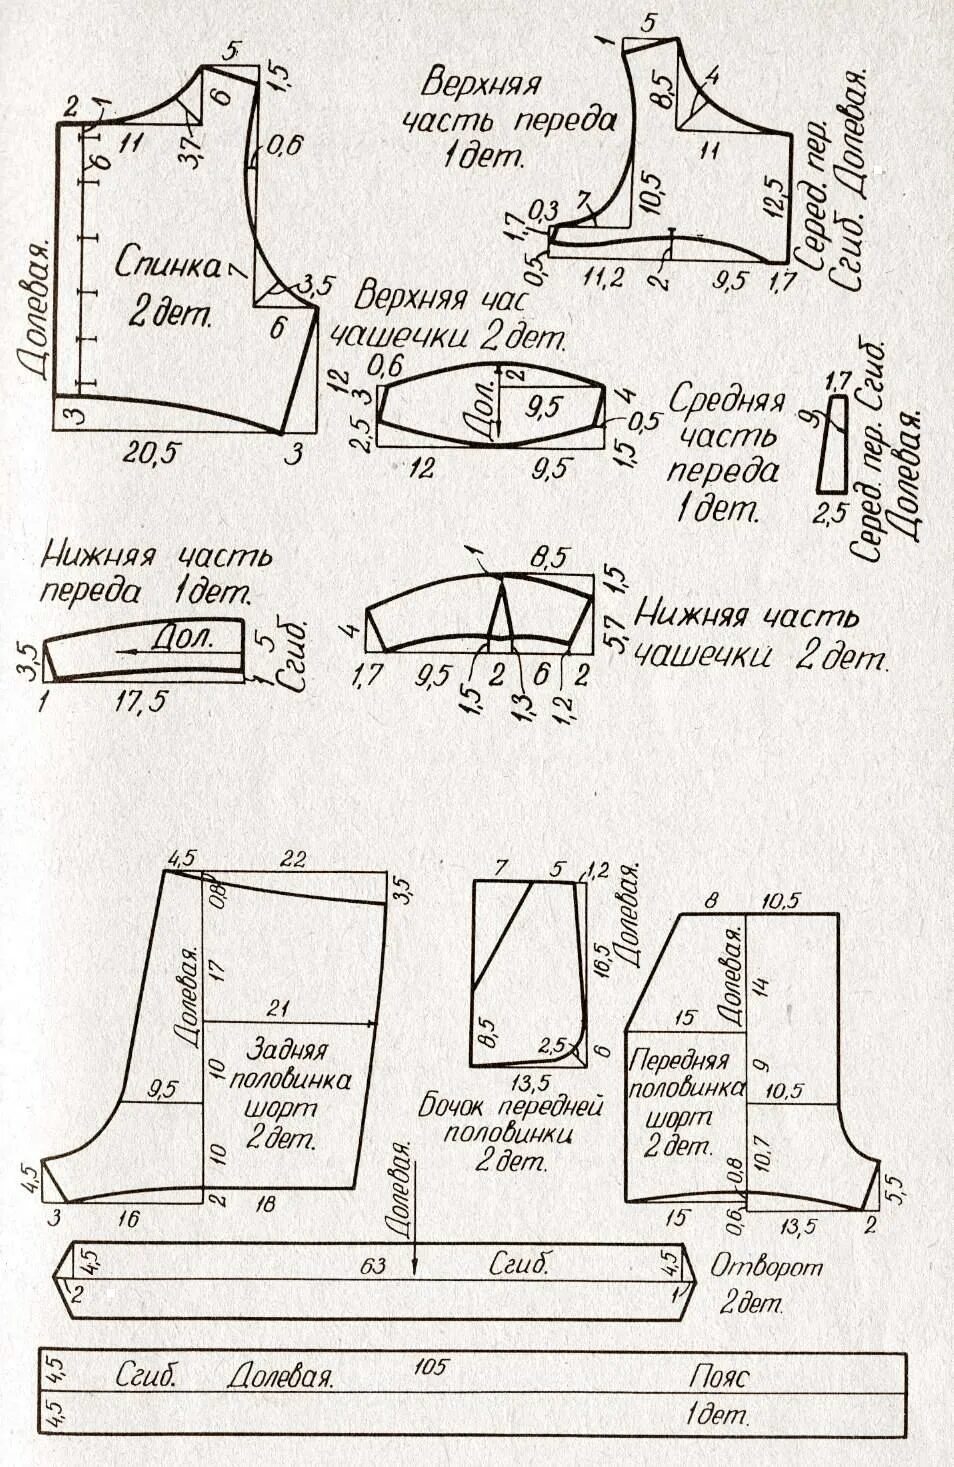 5
1,5
6
2
1
11
3,7
6
0,6
Долевая.
Спинка
2 дет.
7
3,5
6
3
20,5
3
5
1
Верхняя
часть переда
1 дет.
8,5
4
11
10,5
12,5
Серед. пер.
Сгиб. Долевая.
7
0,3
1,7
0,5
11,2
2
9,5
1,7
Верхняя час
чашечки 2 дет.
12
0,6
3
2,5
2
Дол.
9,5
4
0,5
1,5
12
9,5
Средняя
часть
переда
1 дет.
1,7
9
2,5
Серед. пер. Сгиб.
Долевая.
Нижняя часть
переда 1 дет.
3,5
Дол.
5
Сгиб.
1
1
17,5
1
8,5
1,5
4
5,7
Нижняя часть
чашечки 2 дет.
1,7
9,5
1,5
2
1,3
6
1,2
2
4,5
22
0,8
3,5
Долевая.
17
21
Задняя
половинка
шорт
2 дет.
10
9,5
10
4,5
3
16
2
18
7
5
1,2
Долевая.
16,5
8,5
2,5
6
13,5
Бочок передней
половинки
2 дет.
8
10,5
Долевая.
14
15
Передняя
половинка
шорт
2 дет.
9
10,5
10,7
0,8
5,5
15
0,6
13,5
2
Долевая.
4,5
63
Сгиб.
4,5
2
1
Отворот
2 дет.
4,5
Сгиб.
Долевая.
105
Пояс
4,5
1 дет.